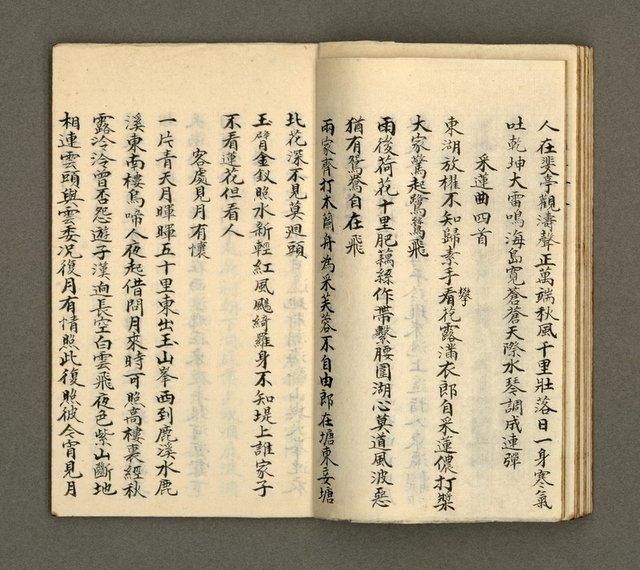 人在斐亭觀濤聲正萬端秋風千里壯落日一身寒氣
吐乾坤大雷鳴海島寬蒼蒼天際水琴調成連彈
采蓮曲四首
東湖放櫂不知歸素手看花露滿衣郎自采蓮儂打槳
攀
大家驚起鷺鷥飛
雨後荷花十里肥藕絲作帶繫腰圍湖心莫道風波惡
猶有鴛鴦自在飛
兩家齊打木蘭舟為采芙蓉不自由郎在塘東妾塘
北花深不見莫迴頭
玉臂金釵照水新輕紅風颺綺羅身不知堤上誰家子
不看蓮花但看人
客處見月有懷
一片青天月暉暉五十里東出玉山峯西到鹿溪水鹿
溪東南樓烏啼人夜起借問月來時可照高樓裏經秋
露泠泠曾否怨遊子漢迥長空白雲飛夜色紫山斷地
相連雲頭與雲委況復月有情照此復照彼今宵見月